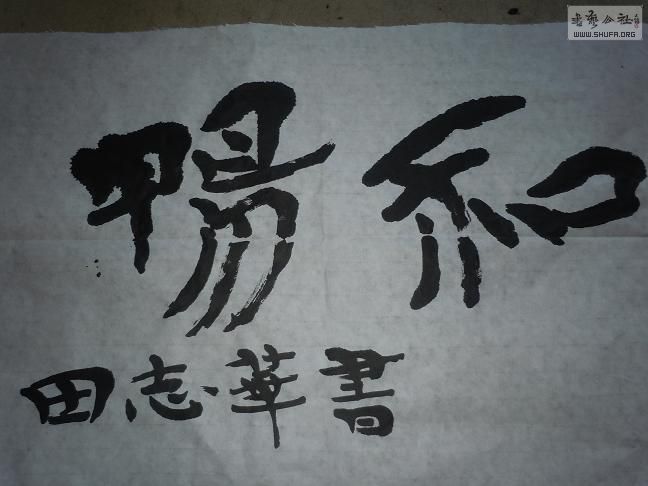 書藝公社
WWW.SHUFA.ORG
和暢
田志華書